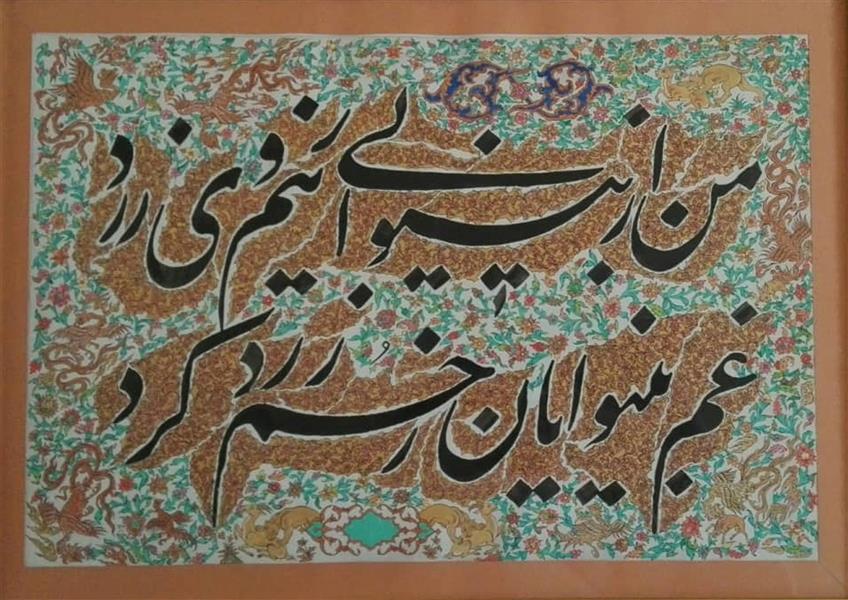 من از بینوایی نیم روی زرد
غم بینوایان رُخم زرد کرد